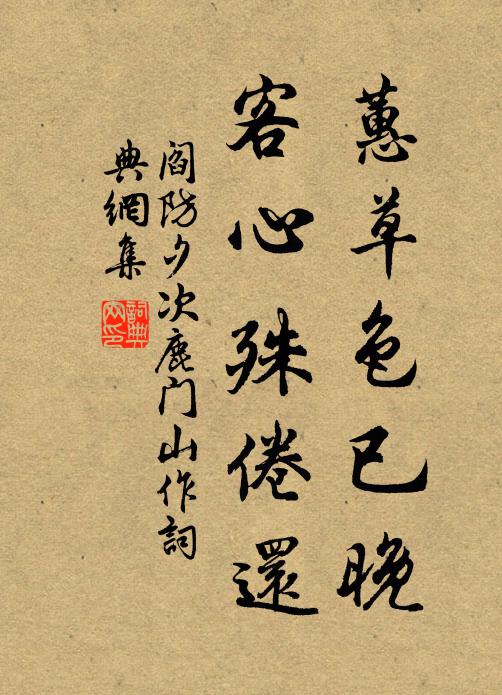 蕙草色已晚
客心殊倦還
閻防夕次鹿門山作詞
典網集
詞典
网印